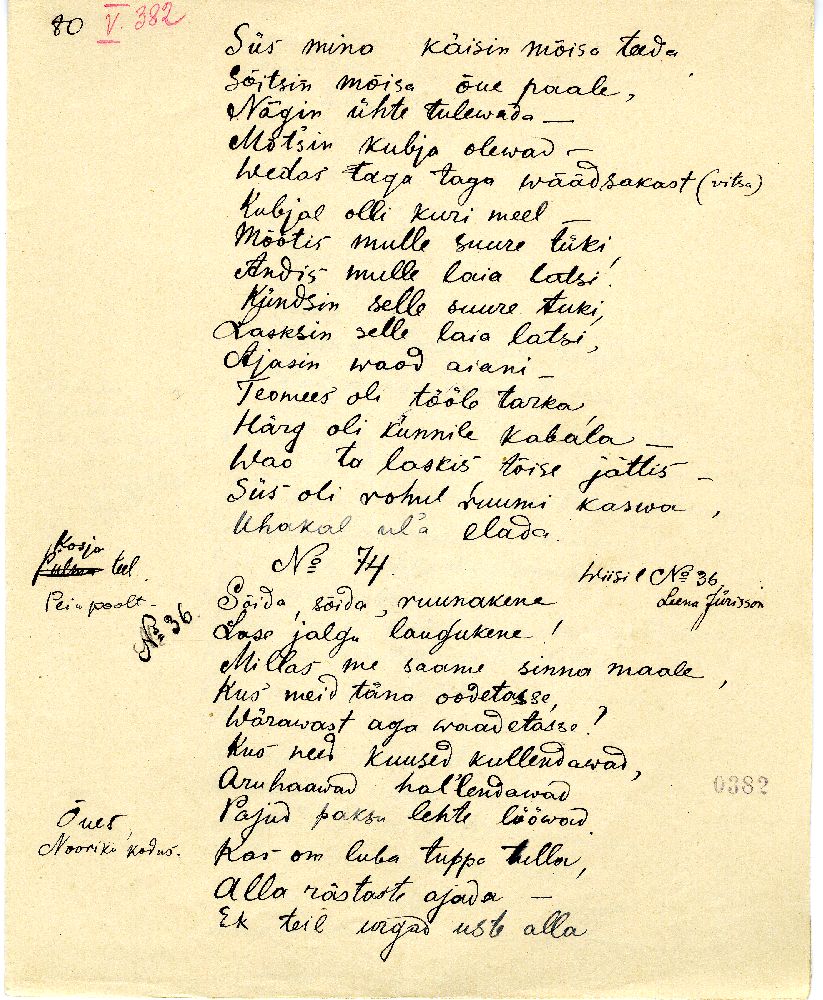 80 V. 382
Siis mina käisin mõisa teeda,
Sõitsin mõisa õue paale,
Nägin ühte tulewada —
Mõtsin kubja olewad —
Wedas taga taga wäädsakast (vitsa)
Kubjal olli kuri meel —
Mõõtis mulle suure tüki,
Andis mulle laia latsi.
Kündsin selle suure tuki,
Lasksin selle laia latsi,
Ajasin waod aiani —
Teomees oli tööle tarka,
Härg oli künnile kabala —
Wao ta laskis tõise jättis —
Siis oli rohul ruumi kaswa,
Uhakal ul'a elada.
No 74.
Kosja
Pulma teel.
Peiu poolt —
No 36.
Wiisil No 36,
Leena Jürisson
Sõida, sõida, ruunakene
Lase jalgu laugukene!
Millas me saame sinna maale,
Kus meid täna oodetasse,
Wärawast aga waadetasse?
Kus need kuused kullendawad,
Aruhaawad hal'lendawad
Pajud paksu lehte lööwad.
0382
Õues,
Nooriku kodus.
Kas om luba tuppa tulla,
Alla rästaste ajada —
Ek teil wigad uste alla